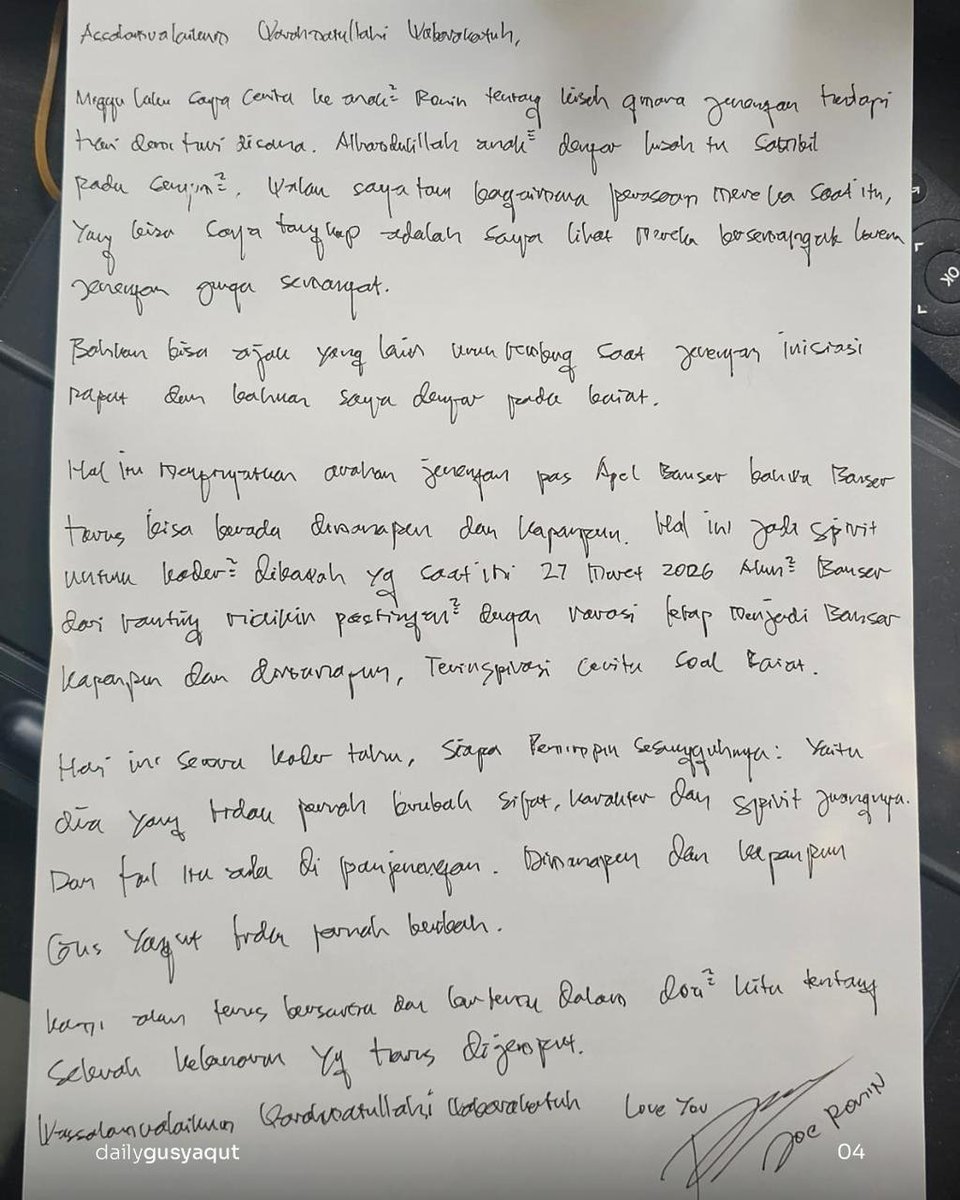 Assalamualaikum Warahmatullahi Wabarakatuh,
Minggu lalu saya cerita ke anak² Ronin tentang kisah gmana jenengan hadapi
hari demi hari disana. Alhamdulillah anak² dengar kisah itu sambil
pada senyum². Walau saya tau bagaimana perasaan mereka saat itu,
Yang bisa saya tangkap adalah saya lihat mereka bersemangat karena
jenengan juga semangat.
Bahkan bisa ajak yang lain urun rembug saat jenengan inisiasi
rapat dan bahkan saya dengar pada baiat.
Hal itu arahan jenengan pas Apel Banser bahwa Banser
harus bisa berada dimanapun dan kapanpun. Hal ini jadi spirit
untuk kader² dibawah yg saat ini 27 Maret 2026 Akun² Banser
dari ranting postingan² dengan narasi tetap menjadi Banser
kapanpun dan dimanapun, Terinspirasi cerita soal Baiat.
Hari ini semua kader tahu, siapa Pemimpin sesungguhnya: Yaitu
dia yang tidak pernah berubah sifat, karakter dan spirit juangnya.
Dan hal itu ada di panjenengan. Dimanapun dan kapanpun
Gus Yaqut tidak pernah berubah.
Kami akan terus bersama dan bertemu dalam doa² kita tentang
sebuah kebenaran yg harus dijemput.
Wassalamualaikum Warahmatullahi Wabarakatuh Love You
Joe RONIN
dailygusyaqut 04
OK